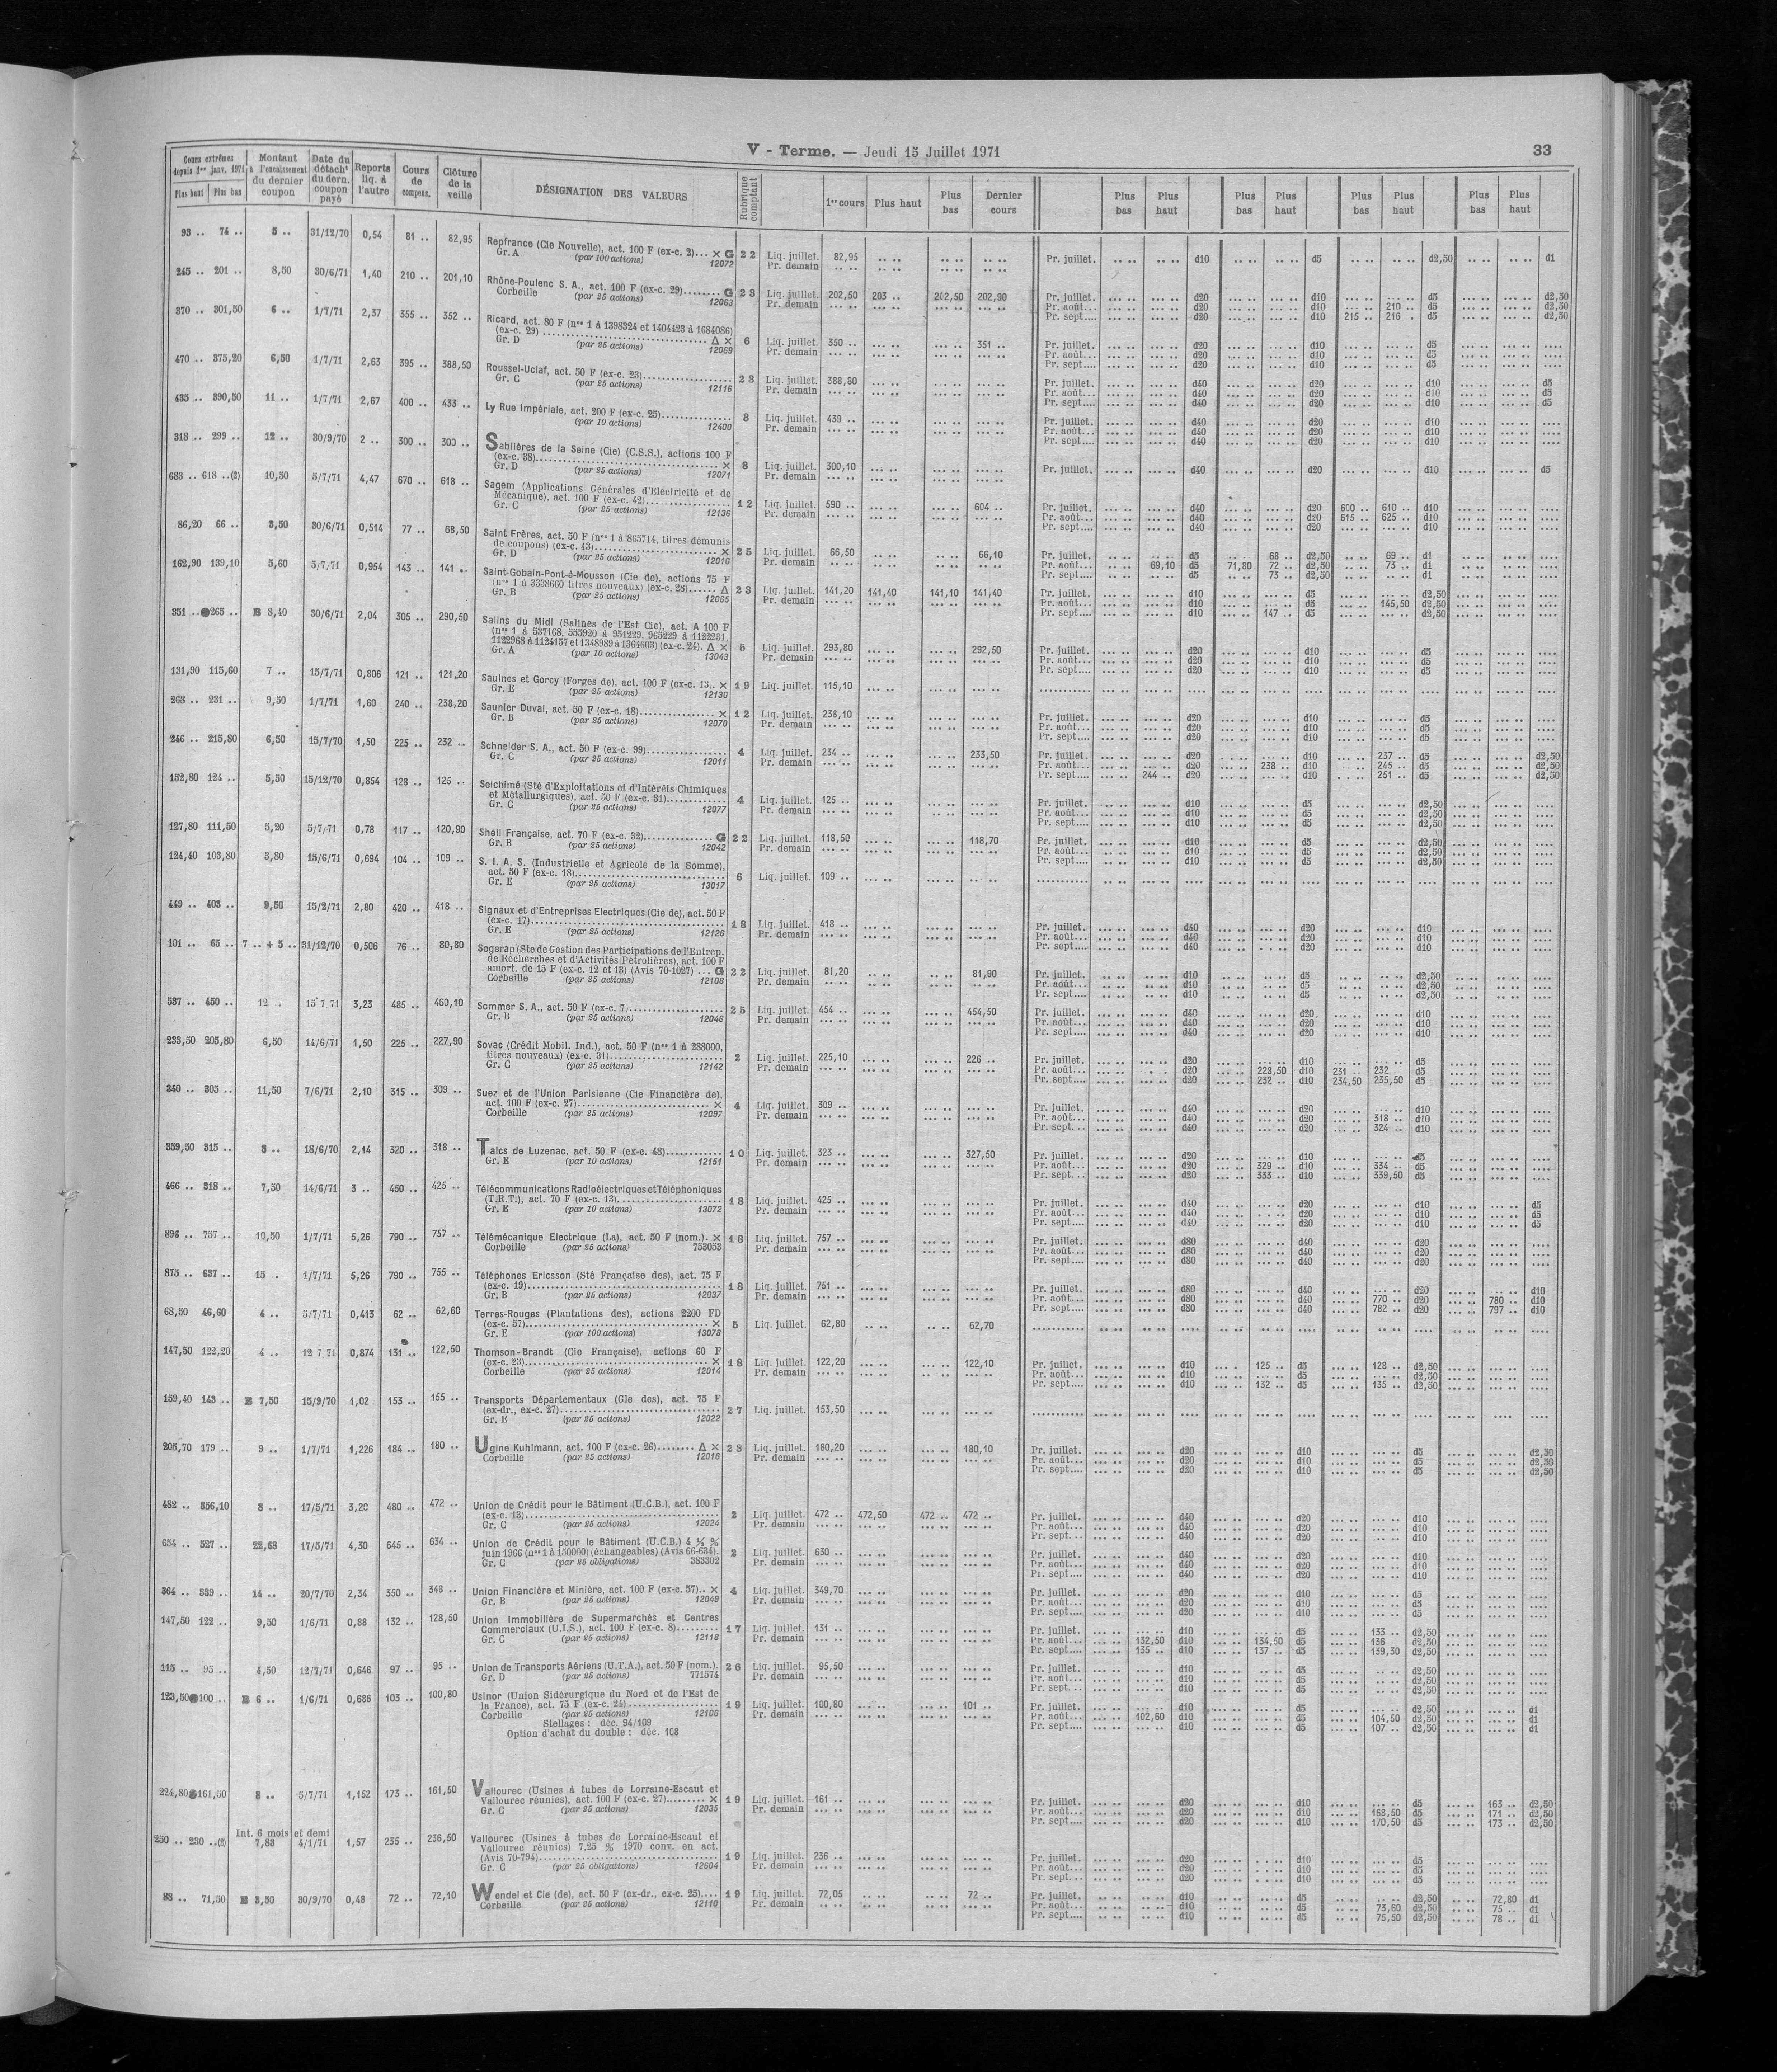 V - Terme. — Jeudi 15 Juillet 1971
33
Cours extrêmes depuis 1er janv. 1971
Plus haut Plus bas
Montant à l'encaissement du dernier coupon
Date du détacht du dern. coupon payé
Reports liq. à l'autre
Cours de compens.
Clôture de la veille
DÉSIGNATION DES VALEURS
Rubrique comptant
1er cours Plus haut Plus bas Dernier cours
Plus bas Plus haut Plus bas Plus haut Plus bas Plus haut Plus bas Plus haut
93 .. 74 .. 5 .. 31/12/70 0,54 81 .. 82,95
Repfrance (Cie Nouvelle), act. 100 F (ex-c. 2)... × G 22 Liq. juillet. 82,95 Pr. juillet. d10 d5 d2,50 d1
Gr. A (par 100 actions) 12072 Pr. demain
245 .. 201 .. 8,50 30/6/71 1,40 210 .. 201,10
Rhône-Poulenc S. A., act. 100 F (ex-c. 29)........ G 23 Liq. juillet. 202,50 203 .. 202,50 202,90 Pr. juillet. d20 d10 d5 d2,50
Corbeille (par 25 actions) 12063 Pr. demain Pr. août... d20 d10 210 .. d5 d2,50
Pr. sept.... d20 d10 215 .. 216 . d5 d2,50
370 .. 301,50 6 .. 1/7/71 2,37 355 .. 352 ..
Ricard, act. 80 F (nos 1 à 1398324 et 1404423 à 1684086)
(ex-c. 29) ........ Δ × 6 Liq. juillet. 350 .. 351 .. Pr. juillet. d20 d10 d5
Gr. D (par 25 actions) 12069 Pr. demain Pr. août... d20 d10 d5
Pr. sept.... d20 d10 d5
470 .. 375,20 6,50 1/7/71 2,63 395 .. 388,50
Roussel-Uclaf, act. 50 F (ex-c. 23)........ 23 Liq. juillet. 388,80 Pr. juillet. d40 d20 d10 d5
Gr. C (par 25 actions) 12116 Pr. demain Pr. août... d40 d20 d10 d5
Pr. sept.... d40 d20 d10 d5
435 .. 390,50 11 .. 1/7/71 2,67 400 .. 433 ..
Ly Rue Impériale, act. 200 F (ex-c. 25)........ 3 Liq. juillet. 439 .. Pr. juillet. d40 d20 d10
(par 10 actions) 12400 Pr. demain Pr. août... d40 d20 d10
Pr. sept.... d40 d20 d10
318 .. 299 .. 12 .. 30/9/70 2 .. 300 .. 300 ..
Sablières de la Seine (Cie) (C.S.S.), actions 100 F
(ex-c. 38)........ × 8 Liq. juillet. 300,10 Pr. juillet. d40 d20 d10 d5
Gr. D (par 25 actions) 12071 Pr. demain
683 .. 618 ..(2) 10,50 5/7/71 4,47 670 .. 618 ..
Sagem (Applications Générales d'Electricité et de
Mécanique), act. 100 F (ex-c. 42)........ 12 Liq. juillet. 590 .. 604 .. Pr. juillet. d40 d20 600 .. 610 .. d10
Gr. C (par 25 actions) 12136 Pr. demain Pr. août... d40 d20 615 .. 625 .. d10
Pr. sept.... d40 d20 d10
86,20 66 .. 3,50 30/6/71 0,514 77 .. 68,50
Saint Frères, act. 50 F (nos 1 à 865714, titres démunis
de coupons) (ex-c. 43)........ × 25 Liq. juillet. 66,50 66,10 Pr. juillet. d5 68 .. d2,50 69 .. d1
Gr. D (par 25 actions) 12010 Pr. demain Pr. août... 69,10 d5 71,80 72 .. d2,50 73 .. d1
Pr. sept.... d5 73 .. d2,50 d1
162,90 139,10 5,60 5/7/71 0,954 143 .. 141 ..
Saint-Gobain-Pont-à-Mousson (Cie de), actions 75 F
(nos 1 à 3338660 titres nouveaux) (ex-c. 28)...... Δ 23 Liq. juillet. 141,20 141,40 141,10 141,40 Pr. juillet. d10 d5 d2,50
Gr. B (par 25 actions) 12065 Pr. demain Pr. août... d10 d5 145,50 d2,50
Pr. sept.... d10 147 .. d5 d2,50
331 .. 263 .. B 8,40 30/6/71 2,04 305 .. 290,50
Salins du Midi (Salines de l'Est Cie), act. A 100 F
(nos 1 à 537168, 555920 à 951229, 965229 à 1122231,
1122968 à 1124157 et 1348989 à 1364603) (ex-c. 24). Δ × 5 Liq. juillet. 293,80 292,50 Pr. juillet. d20 d10 d5
Gr. A (par 10 actions) 13043 Pr. demain Pr. août... d20 d10 d5
Pr. sept.... d20 d10 d5
131,90 115,60 7 .. 15/7/71 0,806 121 .. 121,20
Saulnes et Gorcy (Forges de), act. 100 F (ex-c. 13). × 19 Liq. juillet. 115,10
Gr. E (par 25 actions) 12130
268 .. 231 .. 9,50 1/7/71 1,60 240 .. 238,20
Saunier Duval, act. 50 F (ex-c. 18)........ × 12 Liq. juillet. 238,10 Pr. juillet. d20 d10 d5
Gr. B (par 25 actions) 12070 Pr. demain Pr. août... d20 d10 d5
Pr. sept.... d20 d10 d5
246 .. 215,80 6,50 15/7/70 1,50 225 .. 232 ..
Schneider S. A., act. 50 F (ex-c. 99)........ 4 Liq. juillet. 234 .. 233,50 Pr. juillet. d20 d10 237 .. d5 d2,50
Gr. C (par 25 actions) 12011 Pr. demain Pr. août... d20 238 .. d10 245 .. d5 d2,50
Pr. sept.... 244 .. d20 d10 251 .. d5 d2,50
152,80 124 .. 5,50 15/12/70 0,854 128 .. 125 ..
Seichimé (Sté d'Exploitations et d'Intérêts Chimiques
et Métallurgiques), act. 50 F (ex-c. 31)........ 4 Liq. juillet. 125 .. Pr. juillet. d10 d5 d2,50
Gr. C (par 25 actions) 12077 Pr. demain Pr. août... d10 d5 d2,50
Pr. sept.... d10 d5 d2,50
127,80 111,50 5,20 5/7/71 0,78 117 .. 120,90
Shell Française, act. 70 F (ex-c. 32)........ G 22 Liq. juillet. 118,50 118,70 Pr. juillet. d10 d5 d2,50
Gr. B (par 25 actions) 12042 Pr. demain Pr. août... d10 d5 d2,50
Pr. sept.... d10 d5 d2,50
124,40 103,80 3,80 15/6/71 0,694 104 .. 109 ..
S. I. A. S. (Industrielle et Agricole de la Somme),
act. 50 F (ex-c. 18)........ 6 Liq. juillet. 109 ..
Gr. E (par 25 actions) 13017
449 .. 403 .. 9,50 15/2/71 2,80 420 .. 418 ..
Signaux et d'Entreprises Electriques (Cie de), act. 50 F
(ex-c. 17)........ 18 Liq. juillet. 418 .. Pr. juillet. d40 d20 d10
Gr. E (par 25 actions) 12126 Pr. demain Pr. août... d40 d20 d10
Pr. sept.... d40 d20 d10
101 .. 65 .. 7 .. + 5 .. 31/12/70 0,506 76 .. 80,80
Sogerap (Sté de Gestion des Participations de l'Entrep.
de Recherches et d'Activités Pétrolières), act. 100 F
amort. de 15 F (ex-c. 12 et 13) (Avis 70-1027) ... G 22 Liq. juillet. 81,20 81,90 Pr. juillet. d10 d5 d2,50
Corbeille (par 25 actions) 12108 Pr. demain Pr. août... d10 d5 d2,50
Pr. sept.... d10 d5 d2,50
537 .. 450 .. 12 .. 15 7 71 3,23 485 .. 460,10
Sommer S. A., act. 50 F (ex-c. 7)........ 25 Liq. juillet. 454 .. 454,50 Pr. juillet. d40 d20 d10
Gr. B (par 25 actions) 12046 Pr. demain Pr. août... d40 d20 d10
Pr. sept.... d40 d20 d10
233,50 205,80 6,50 14/6/71 1,50 225 .. 227,90
Sovac (Crédit Mobil. Ind.), act. 50 F (nos 1 à 288000,
titres nouveaux) (ex-c. 31)........ 2 Liq. juillet. 225,10 226 .. Pr. juillet. d20 d10 d5
Gr. C (par 25 actions) 12142 Pr. demain Pr. août... d20 228,50 d10 231 .. 232 .. d5
Pr. sept.... d20 232 .. d10 234,50 235,50 d5
340 .. 305 .. 11,50 7/6/71 2,10 315 .. 309 ..
Suez et de l'Union Parisienne (Cie Financière de),
act. 100 F (ex-c. 27)........ × 4 Liq. juillet. 309 .. Pr. juillet. d40 d20 d10
Corbeille (par 25 actions) 12097 Pr. demain Pr. août... d40 d20 318 .. d10
Pr. sept.... d40 d20 324 .. d10
359,50 315 .. 8 .. 18/6/70 2,14 320 .. 318 ..
Talcs de Luzenac, act. 50 F (ex-c. 48)........ 10 Liq. juillet. 323 .. 327,50 Pr. juillet. d20 d10 d5
Gr. E (par 10 actions) 12151 Pr. demain Pr. août... d20 329 .. d10 334 .. d5
Pr. sept.... d20 333 .. d10 339,50 d5
466 .. 318 .. 7,50 14/6/71 3 .. 450 .. 425 ..
Télécommunications Radioélectriques et Téléphoniques
(T.R.T.), act. 70 F (ex-c. 13)........ 18 Liq. juillet. 425 .. Pr. juillet. d40 d20 d10 d5
Gr. E (par 10 actions) 13072 Pr. demain Pr. août... d40 d20 d10 d5
Pr. sept.... d40 d20 d10 d5
896 .. 757 .. 10,50 1/7/71 5,26 790 .. 757 ..
Télémécanique Electrique (La), act. 50 F (nom.). × 18 Liq. juillet. 757 .. Pr. juillet. d80 d40 d20
Corbeille (par 25 actions) 753053 Pr. demain Pr. août... d80 d40 d20
Pr. sept.... d80 d40 d20
875 .. 637 .. 15 . 1/7/71 5,26 790 .. 755 ..
Téléphones Ericsson (Sté Française des), act. 75 F
(ex-c. 19)........ 18 Liq. juillet. 751 .. Pr. juillet. d80 d40 d20 d10
Gr. B (par 25 actions) 12037 Pr. demain Pr. août... d80 d40 770 .. d20 780 .. d10
Pr. sept.... d80 d40 782 .. d20 797 .. d10
68,50 46,60 4 .. 5/7/71 0,413 62 .. 62,60
Terres-Rouges (Plantations des), actions 2200 FD
(ex-c. 57)........ × 5 Liq. juillet. 62,80 62,70
Gr. E (par 100 actions) 13078
147,50 122,20 4 .. 12 7 71 0,874 131 .. 122,50
Thomson-Brandt (Cie Française), actions 60 F
(ex-c. 23)........ × 18 Liq. juillet. 122,20 122,10 Pr. juillet. d10 125 .. d5 128 .. d2,50
Corbeille (par 25 actions) 12014 Pr. demain Pr. août... d10 d5 d2,50
Pr. sept.... d10 132 .. d5 135 .. d2,50
159,40 143 .. B 7,50 15/9/70 1,02 153 .. 155 ..
Transports Départementaux (Gle des), act. 75 F
(ex-dr., ex-c. 27)........ 27 Liq. juillet. 153,50
Gr. E (par 25 actions) 12022
205,70 179 .. 9 .. 1/7/71 1,226 184 .. 180 ..
Ugine Kuhlmann, act. 100 F (ex-c. 26)........ Δ × 23 Liq. juillet. 180,20 180,10 Pr. juillet. d20 d10 d5 d2,50
Corbeille (par 25 actions) 12016 Pr. demain Pr. août... d20 d10 d5 d2,50
Pr. sept.... d20 d10 d5 d2,50
482 .. 356,10 8 .. 17/5/71 3,20 480 .. 472 ..
Union de Crédit pour le Bâtiment (U.C.B.), act. 100 F
(ex-c. 13)........ 2 Liq. juillet. 472 .. 472,50 472 .. 472 .. Pr. juillet. d40 d20 d10
Gr. C (par 25 actions) 12024 Pr. demain Pr. août... d40 d20 d10
Pr. sept.... d40 d20 d10
654 .. 527 .. 22,68 17/5/71 4,30 645 .. 634 ..
Union de Crédit pour le Bâtiment (U.C.B.) 4 ½ %
juin 1966 (nos 1 à 150000) (échangeables) (Avis 66-634). 2 Liq. juillet. 630 .. Pr. juillet. d40 d20 d10
Gr. C (par 25 obligations) 383302 Pr. demain Pr. août... d40 d20 d10
Pr. sept.... d40 d20 d10
364 .. 339 .. 14 .. 20/7/70 2,34 350 .. 348 ..
Union Financière et Minière, act. 100 F (ex-c. 57).. × 4 Liq. juillet. 349,70 Pr. juillet. d20 d10 d5
Gr. B (par 25 actions) 12049 Pr. demain Pr. août... d20 d10 d5
Pr. sept.... d20 d10 d5
147,50 122 .. 9,50 1/6/71 0,88 132 .. 128,50
Union Immobilière de Supermarchés et Centres
Commerciaux (U.I.S.), act. 100 F (ex-c. 8)........ 17 Liq. juillet. 131 .. Pr. juillet. d10 d5 133 .. d2,50
Gr. C (par 25 actions) 12118 Pr. demain Pr. août... 132,50 d10 134,50 d5 136 d2,50
Pr. sept.... 135 .. d10 137 .. d5 139,30 d2,50
115 .. 95 .. 4,50 12/7/71 0,646 97 .. 95 ..
Union de Transports Aériens (U.T.A.), act. 50 F (nom.). 26 Liq. juillet. 95,50 Pr. juillet. d10 d5 d2,50
Gr. D (par 25 actions) 771574 Pr. demain Pr. août... d10 d5 d2,50
Pr. sept.... d10 d5 d2,50
123,50 100 .. B 6 .. 1/6/71 0,686 103 .. 100,80
Usinor (Union Sidérurgique du Nord et de l'Est de
la France), act. 75 F (ex-c. 24)........ 19 Liq. juillet. 100,80 101 .. Pr. juillet. d10 d5 d2,50 d1
Corbeille (par 25 actions) 12106 Pr. demain Pr. août... 102,60 d10 d5 104,50 d2,50 d1
Stellages : déc. 94/109 Pr. sept.... d10 d5 107 .. d2,50 d1
Option d'achat du double : déc. 108
224,80 161,50 8 .. 5/7/71 1,152 173 .. 161,50
Vallourec (Usines à tubes de Lorraine-Escaut et
Vallourec réunies), act. 100 F (ex-c. 27)........ × 19 Liq. juillet. 161 .. Pr. juillet. d20 d10 d5 163 .. d2,50
Gr. C (par 25 actions) 12035 Pr. demain Pr. août... d20 d10 168,50 d5 171 .. d2,50
Pr. sept.... d20 d10 170,50 d5 173 .. d2,50
Int. 6 mois et demi
250 .. 230 ..(2) 7,83 4/1/71 1,57 235 .. 236,50
Vallourec (Usines à tubes de Lorraine-Escaut et
Vallourec réunies) 7,25 % 1970 conv. en act.
(Avis 70-794)........ 19 Liq. juillet. 236 .. Pr. juillet. d20 d10 d5
Gr. C (par 25 obligations) 12604 Pr. demain Pr. août... d20 d10 d5
Pr. sept.... d20 d10 d5
88 .. 71,50 B 3,50 30/9/70 0,48 72 .. 72,10
Wendel et Cie (de), act. 50 F (ex-dr., ex-c. 25).... 19 Liq. juillet. 72,05 72 .. Pr. juillet. d10 d5 d2,50 72,80 d1
Corbeille (par 25 actions) 12110 Pr. demain Pr. août... d10 d5 73,60 d2,50 75 .. d1
Pr. sept.... d10 d5 75,50 d2,50 78 .. d1